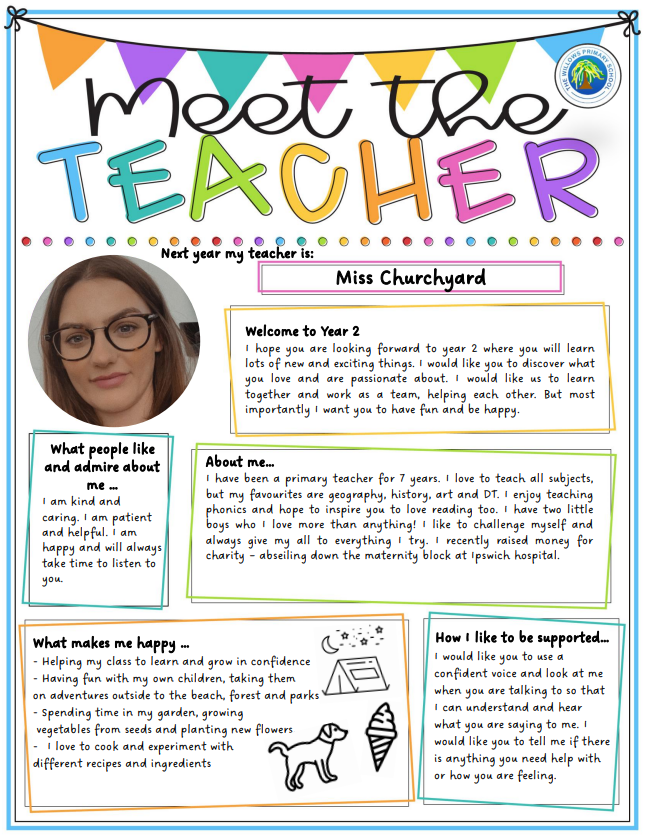 Meet the
THE WILLOWS PRIMARY SCHOOL
TEACHER
Next year my teacher is:
Miss Churchyard
Welcome to Year 2
I hope you are looking forward to year 2 where you will learn
lots of new and exciting things. I would like you to discover what
you love and are passionate about. I would like us to learn
together and work as a team, helping each other. But most
importantly I want you to have fun and be happy.
What people like
and admire about
me ...
I am kind and
caring. I am patient
and helpful. I am
happy and will always
take time to listen to
you.
About me...
I have been a primary teacher for 7 years. I love to teach all subjects,
but my favourites are geography, history, art and DT. I enjoy teaching
phonics and hope to inspire you to love reading too. I have two little
boys who I love more than anything! I like to challenge myself and
always give my all to everything I try. I recently raised money for
charity – abseiling down the maternity block at Ipswich hospital.
What makes me happy ...
- Helping my class to learn and grow in confidence
- Having fun with my own children, taking them
on adventures outside to the beach, forest and parks
- Spending time in my garden, growing
vegetables from seeds and planting new flowers
- I love to cook and experiment with
different recipes and ingredients
How I like to be supported...
I would like you to use a
confident voice and look at me
when you are talking to so that
I can understand and hear
what you are saying to me. I
would like you to tell me if there
is anything you need help with
or how you are feeling.